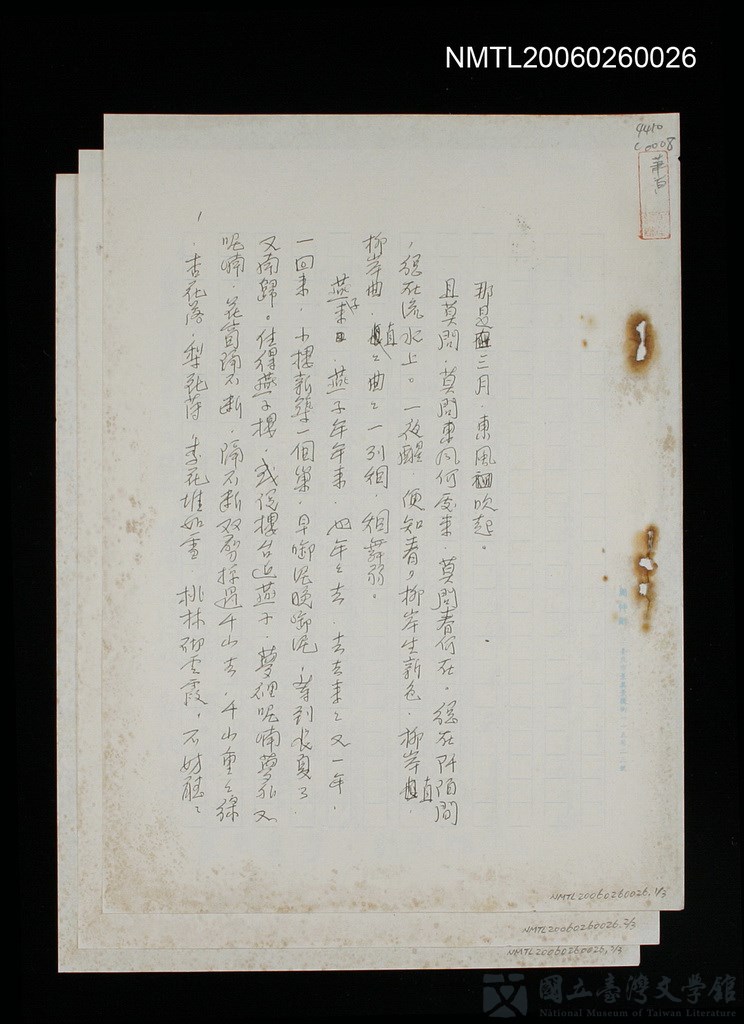 NMTL20060260026
4410
C0008
那是三月．東風吹起。
且莫問．莫問東風何處來．莫問春何在．綠在阡陌間
，綠在流水上。一夜醒 便知春，柳岸生新色．柳岸直．
柳岸曲．直々曲々一列綢．綢舞弱。
燕子來．燕子年年來．也年々去．去去來々又一年．
一回來．小樓新築一個巢．早啣泥晚啣泥，等到長夏了．
又南歸。住得燕子樓．或恐樓台近燕子．夢裡呢喃夢外又
呢喃．花窗隔不斷．隔不斷双剪掠過千山去，千山重々綠
，杏花落．梨花落 李花堆如雪 桃林砌雲霞，不妨聽々
NMTL20060260026,1/3
NMTL20060260026,2/3
NMTL20060260026,3/3
國立臺灣文學館
National Museum of Taiwan Literature